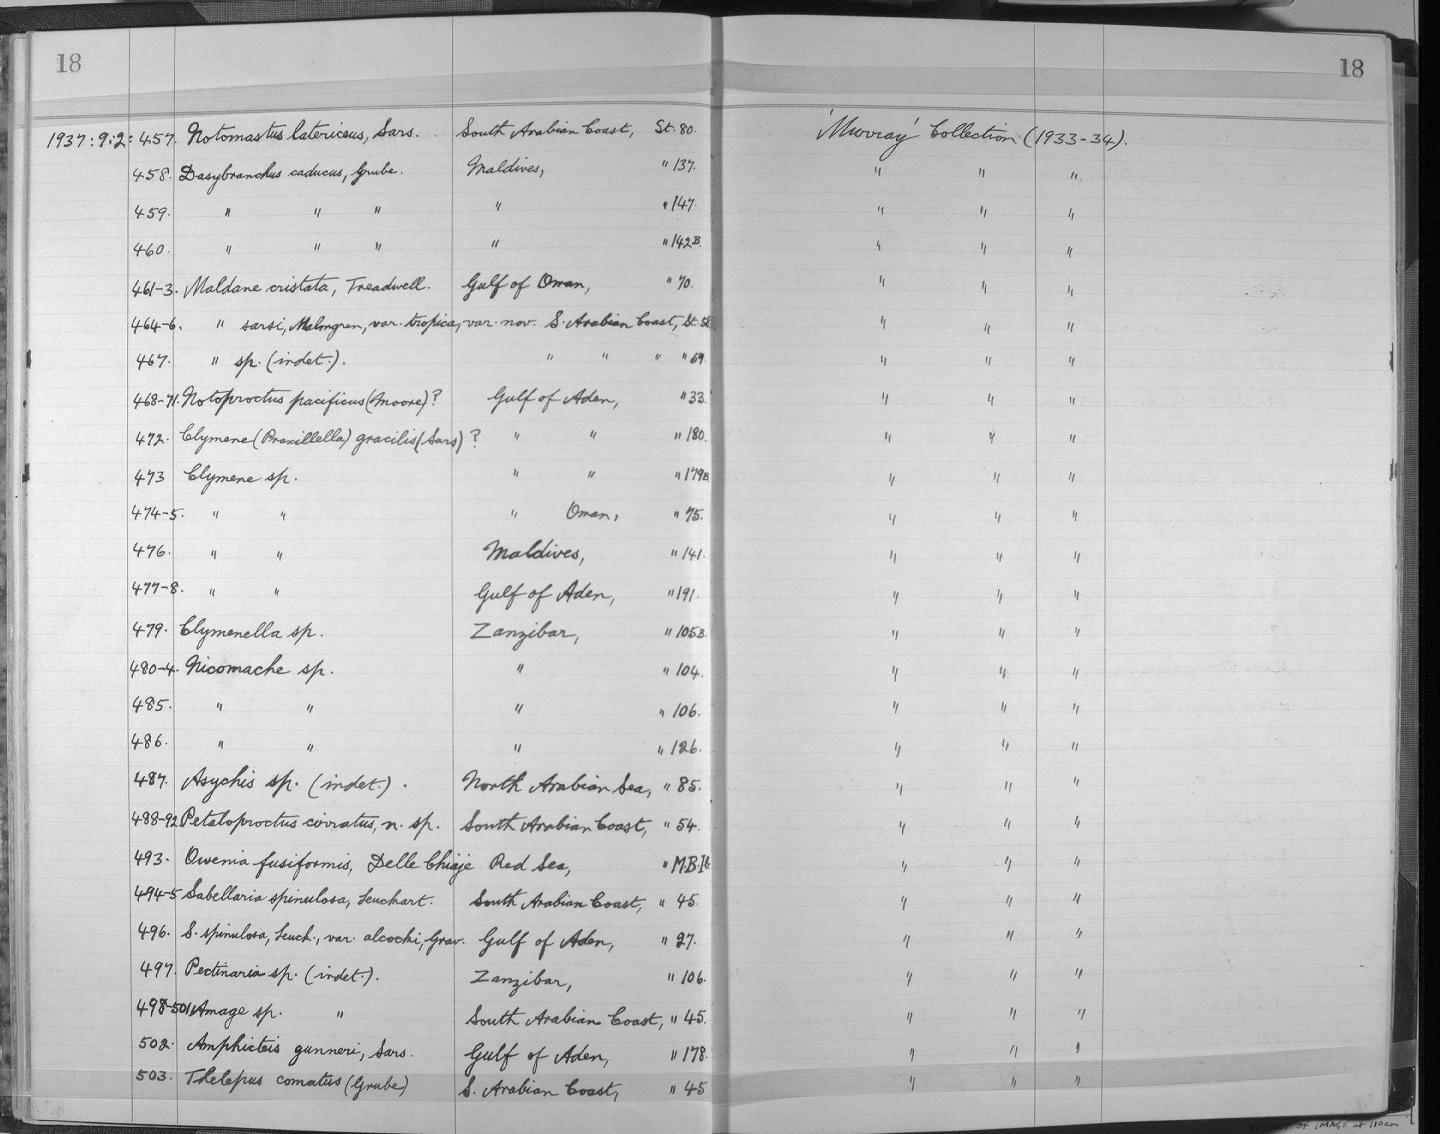 18 18
1937:9:2:457. Notomastus latericeus, Sars. South Arabian Coast, St. 80. 'Murray' Collection (1933-34).
458. Dasybranchus caducus, Grube. Maldives, " 137. " " "
459. " " " " " 147. " " "
460. " " " " " 142B. " " "
461-3. Maldane cristata, Treadwell. Gulf of Oman, " 70. " " "
464-6. " sarsi, Malmgren, var. tropica, var. nov. S. Arabian Coast, St. " " "
467. " sp. (indet.). " " " " 69. " " "
468-71. Notoproctus pacificus (Moore)? Gulf of Aden, " 33. " " "
472. Clymene (Praxillella) gracilis (Sars)? " " " 180. " " "
473 Clymene sp. " " " 179B. " " "
474-5. " " " Oman, " 75. " " "
476. " " Maldives, " 141. " " "
477-8. " " Gulf of Aden, " 191. " " "
479. Clymenella sp. Zanzibar, " 105B. " " "
480-4. Nicomache sp. " " 104. " " "
485. " " " " 106. " " "
486. " " " " 126. " " "
487. Asychis sp. (indet.). North Arabian Sea, " 85. " " "
488-92 Petaloproctus cirratus, n. sp. South Arabian Coast, " 54. " " "
493. Owenia fusiformis, Delle Chiaje Red Sea, " M.B.I " " "
494-5 Sabellaria spinulosa, Leuchart. South Arabian Coast, " 45. " " "
496. S. spinulosa, Leuch., var. alcocki, Grav. Gulf of Aden, " 27. " " "
497. Pectinaria sp. (indet.). Zanzibar, " 106. " " "
498-501 Amage sp. " South Arabian Coast, " 45. " " "
502. Amphicteis gunneri, Sars. Gulf of Aden, " 178. " " "
503. Thelepus comatus (Grube) S. Arabian Coast, " 45 " " "